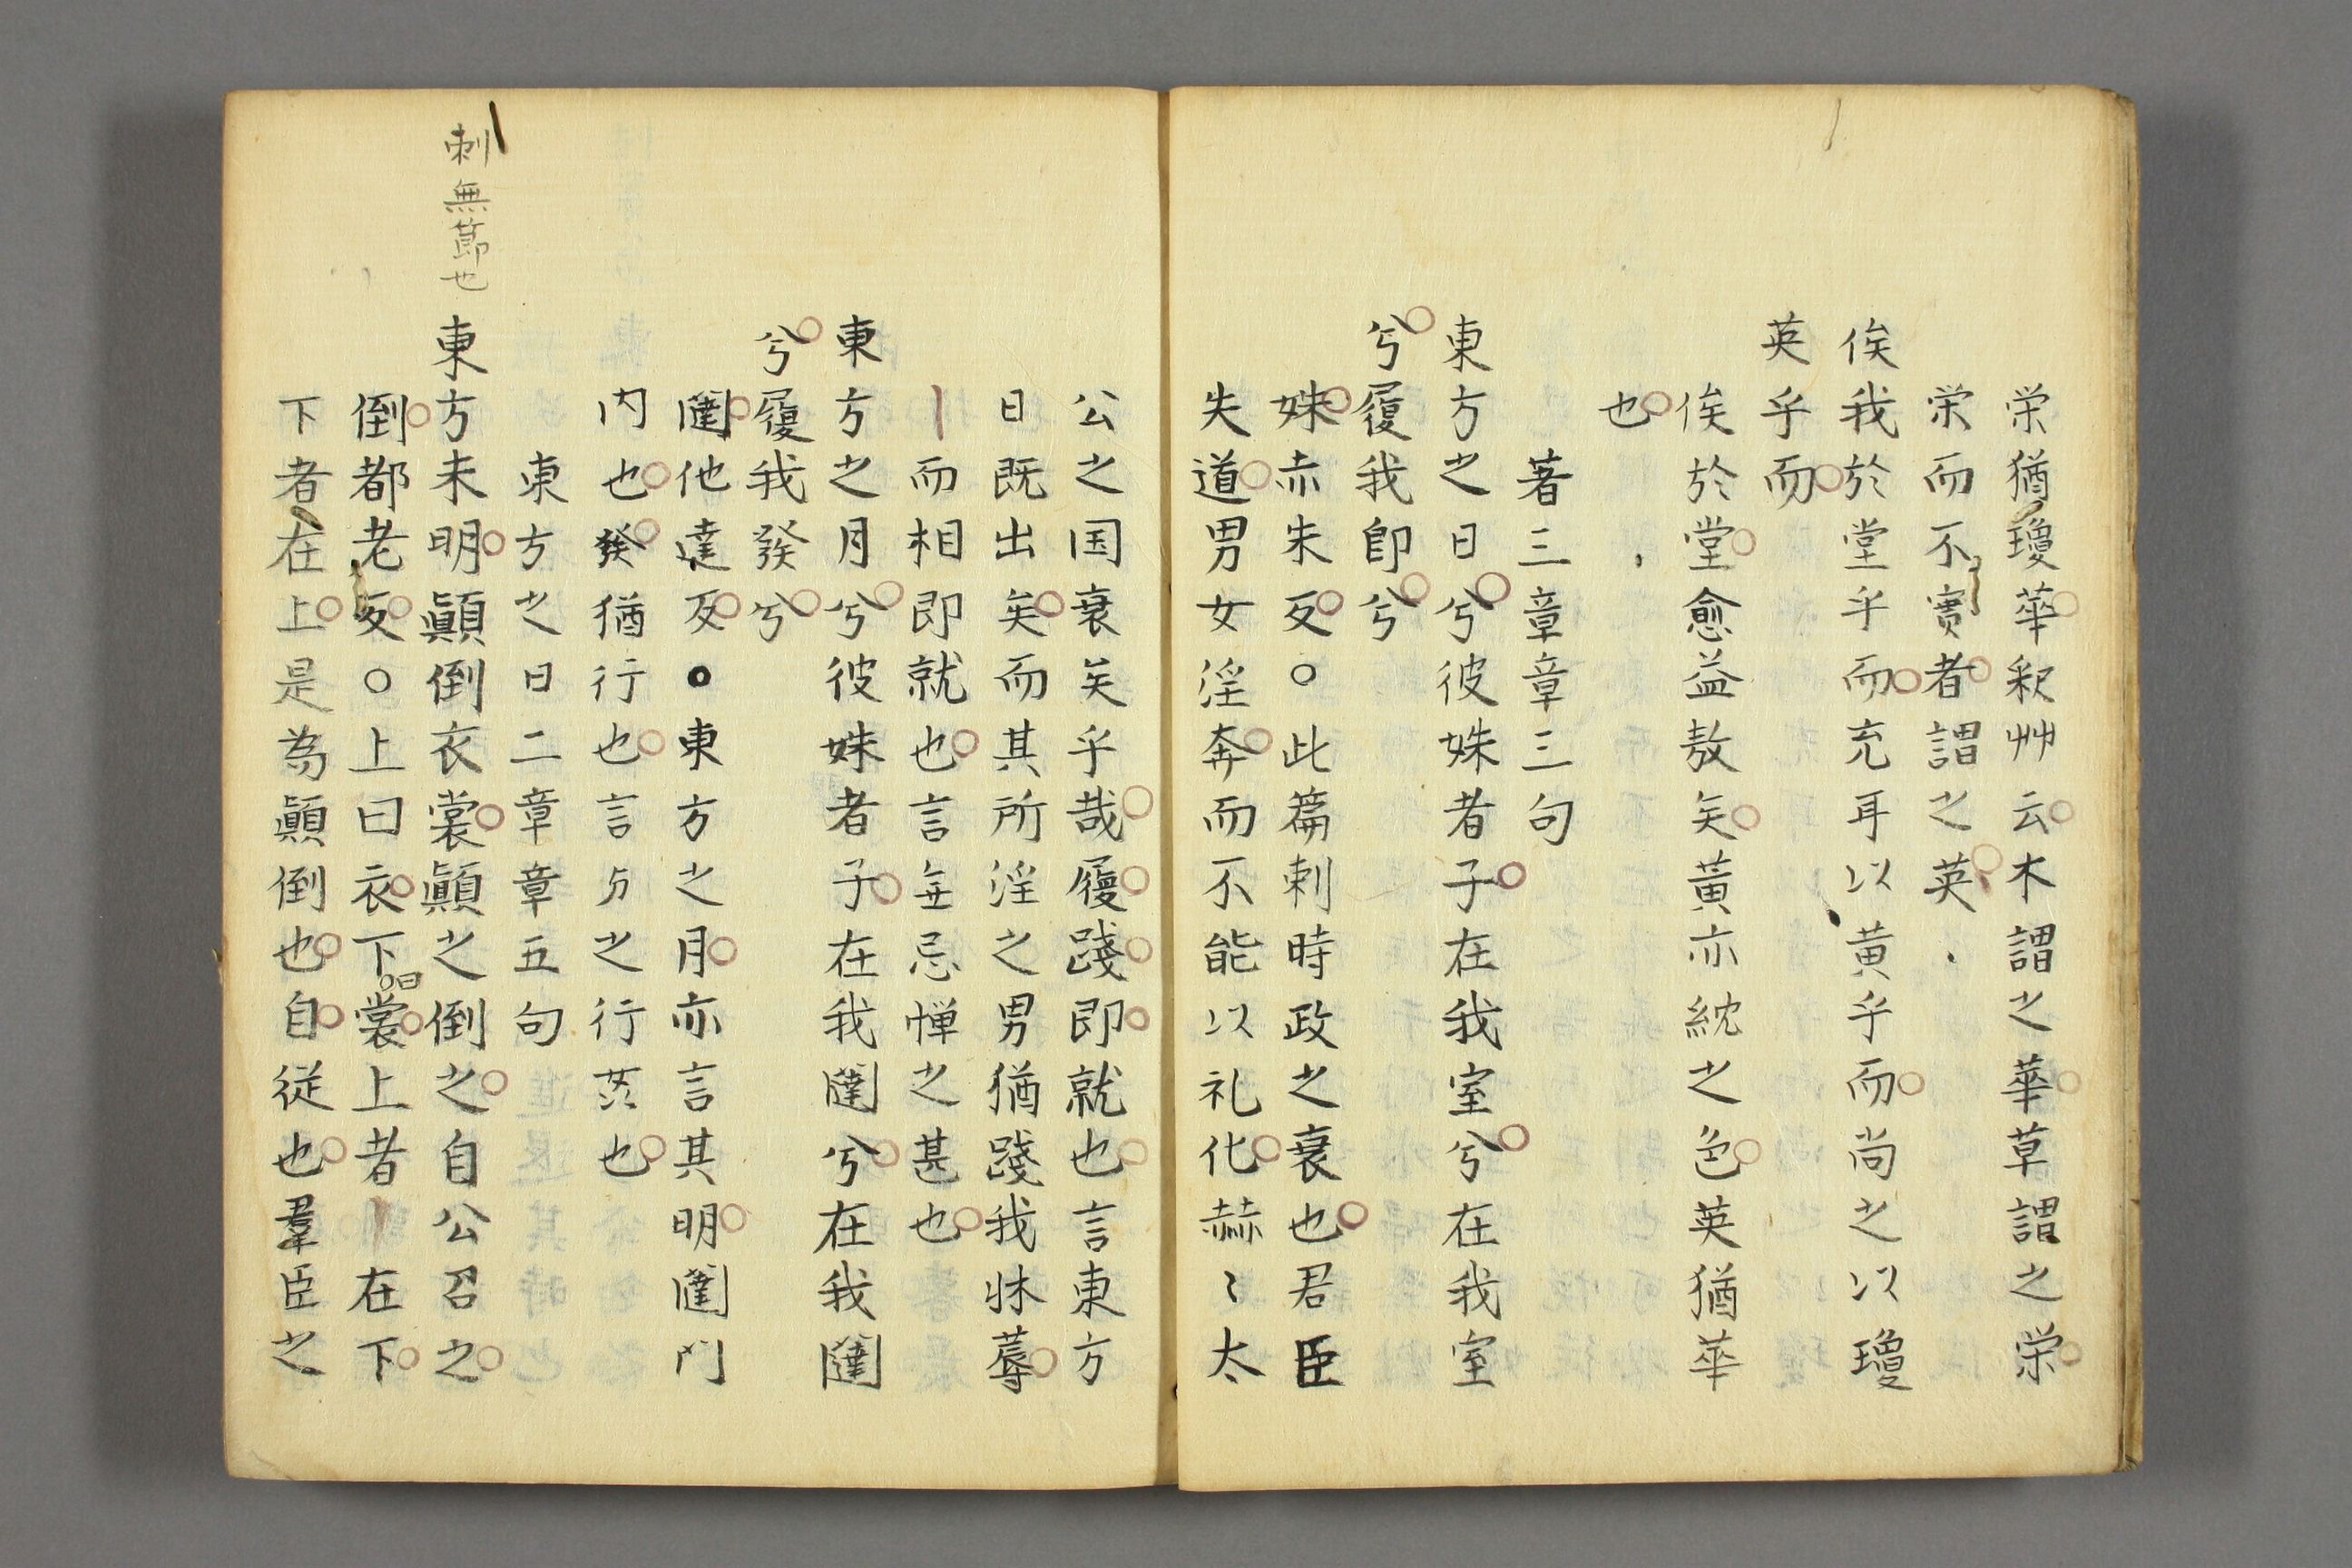 栄猶瓊華釈艸云木謂之華草謂之栄
栄而不実者謂之英
俟我於堂乎而充耳以黄乎而尚之以瓊
英乎而
俟於堂愈益敖矣黄亦紞之色英猶華
也
著三章章三句
東方之日兮彼姝者子在我室兮在我室
兮履我即兮
姝赤朱反○此篇刺時政之衰也君臣
失道男女淫奔而不能以礼化赫〻太
公之国衰矣乎哉履踐即就也言東方
日既出矣而其所淫之男猶踐我牀蓐
而相即就也言無忌憚之甚也
東方之月兮彼姝者子在我闥兮在我闥
兮履我發兮
闥他達反○東方之月亦言其明闥門
内也發猶行也言与之行去也
東方之日二章章五句
刺無節也
東方未明顚倒衣裳顚之倒之自公召之
倒都老反○上曰衣下曰裳上者在下
下者在上是為顚倒也自従也羣臣之